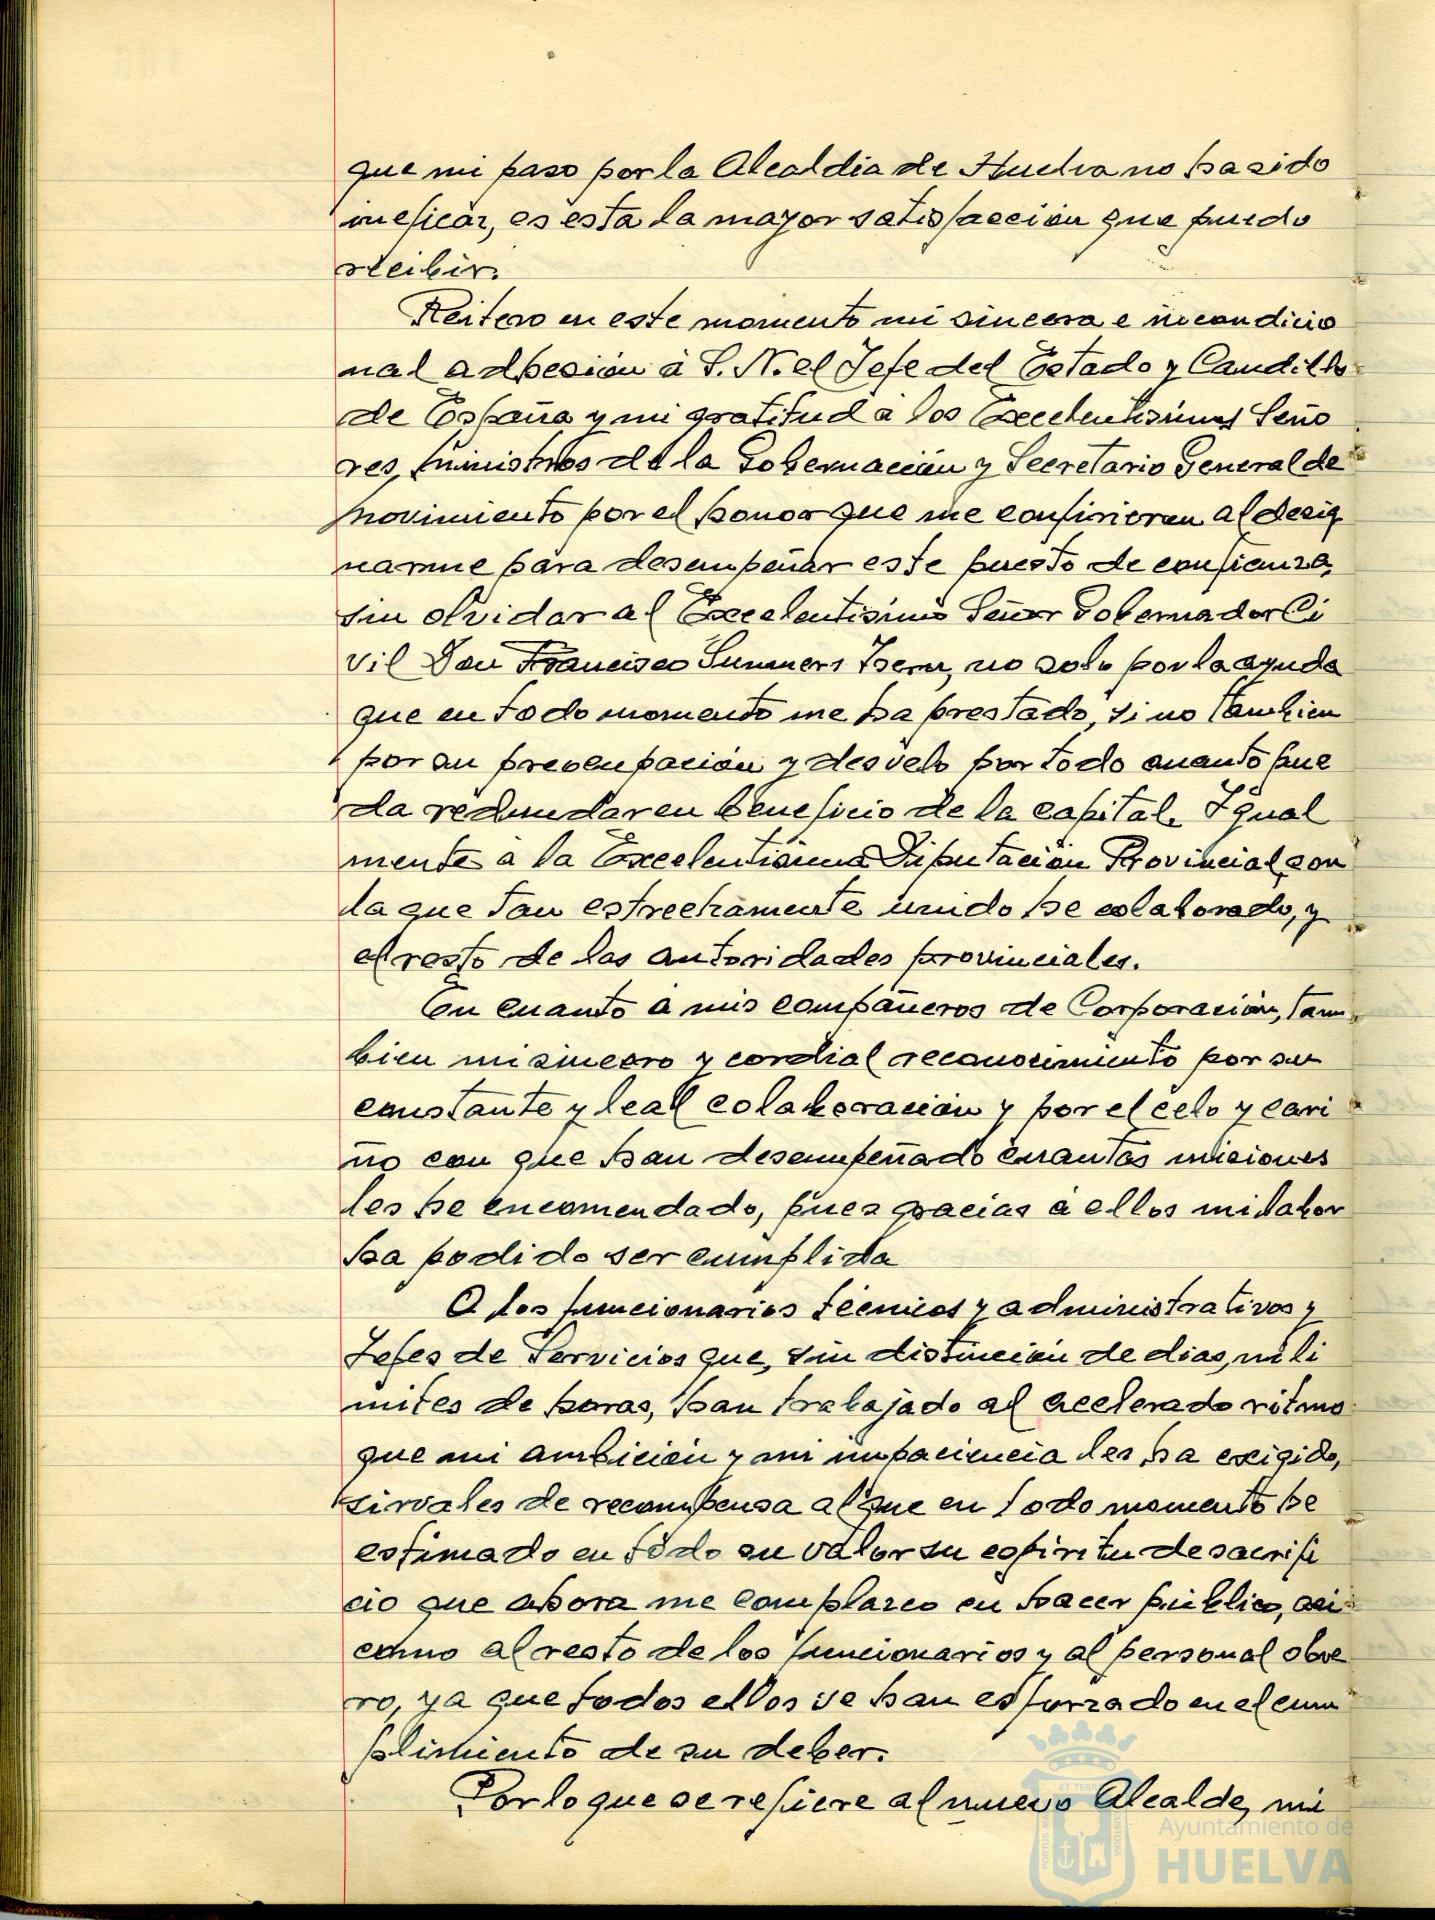 que mi paso por la Alcaldia de Huelva no ha sido
ineficaz, es esta la mayor satisfacción que puedo
recibir.
Reitero en este momento mi sincera e incondicio
nal adhesión á S. N. el Jefe del Estado y Caudillo
de España y mi gratitud á los Excelentisimos Seño
res, Ministros de la Gobernación y Secretario General de
Movimiento por el honor que me confirieron al desig
narme para desempeñar este puesto de confianza,
sin olvidar al Excelentisimo Señor Gobernador Ci
vil Don Francisco Summers Isern, no solo por la ayuda
que en todo momento me ha prestado, si no tambien
por su preocupación y desvelo por todo cuanto pue
da redundar en beneficio de la capital. Igual
mente á la Excelentisima Diputación Provincial, con
la que tan estrechamente unido he colaborado, y
el resto de las autoridades provinciales.
En cuanto á mis compañeros de Corporación, tam
bien mi sincero y cordial reconocimiento por su
constante y leal colaboración y por el celo y cari
ño con que han desempeñado cuantas misiones
les he encomendado, pues gracias á ellos mi labor
ha podido ser cumplida
A los funcionarios técnicos y administrativos y
Jefes de Servicios que, sin distinción de dias, ni li
mites de horas, han trabajado al acelerado ritmo
que mi ambición y mi impaciencia les ha exigido,
sirvales de recompensa al que en todo momento he
estimado en todo su valor su espiritu de sacrifi
cio que ahora me complazco en hacer público, asi
como al resto de los funcionarios y al personal obre
ro, ya que todos ellos se han esforzado en el cum
plimiento de su deber.
Por lo que se refiere al nuevo Alcalde, mi
Ayuntamiento de
HUELVA